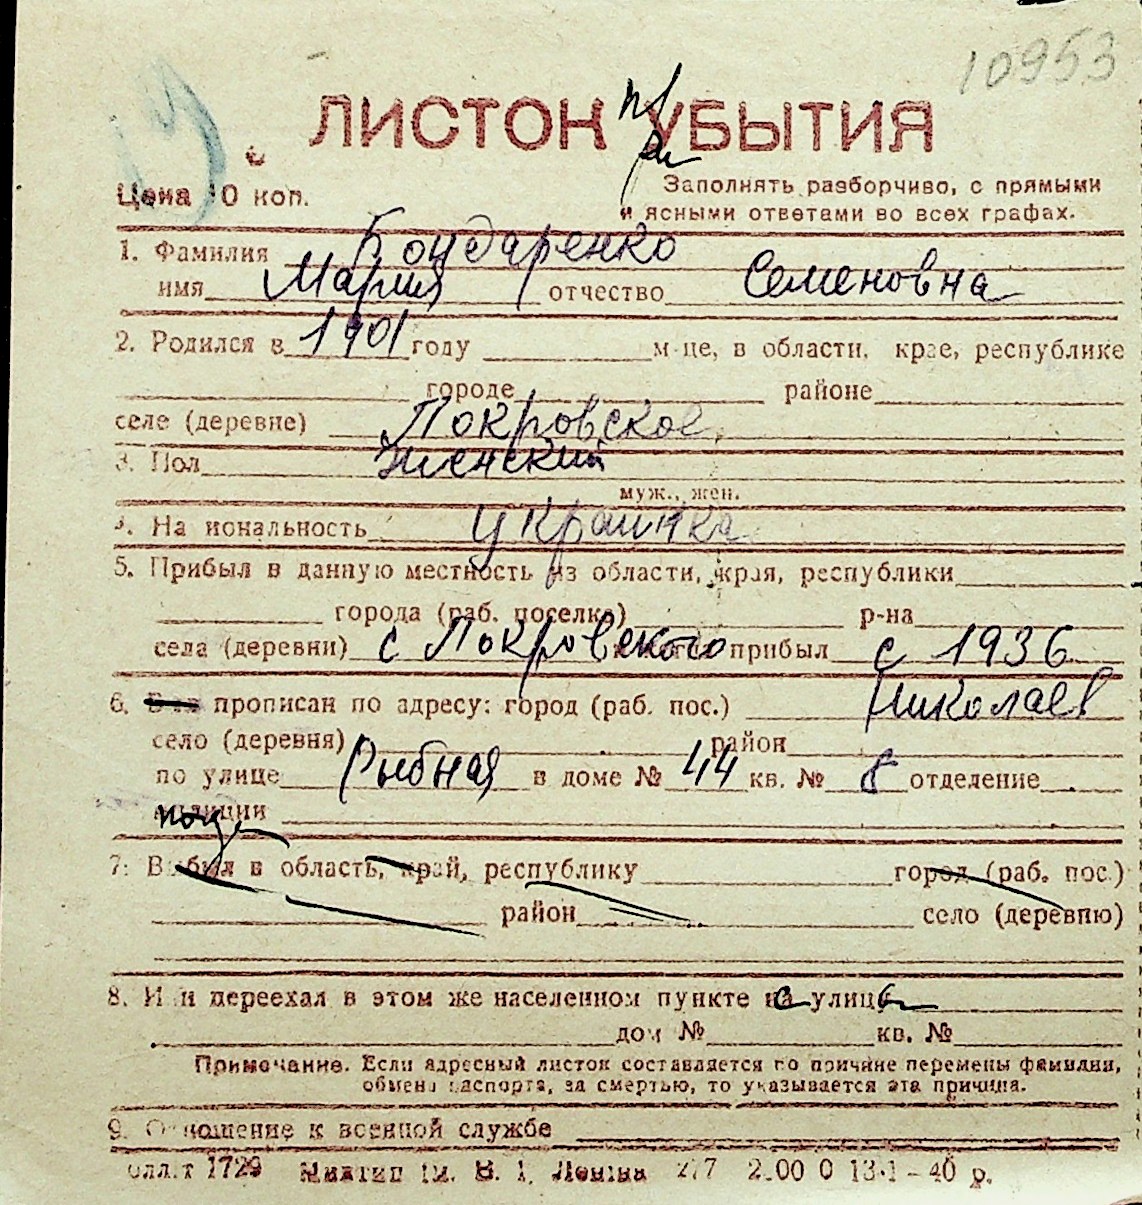 10953
ЛИСТОК УБЫТИЯ
при
Цена 10 коп. Заполнять разборчиво, с прямыми
и ясными ответами во всех графах.
1. Фамилия Бондаренко
имя Мария отчество Семеновна
2. Родился в 1901 году м-це, в области, крае, республике
городе районе
селе (деревне) Покровское
3. Пол женский
муж., жен.
4. Национальность украинка
5. Прибыл в данную местность из области, края, республики
города (раб. поселка) р-на
села (деревни) с Покровского прибыл с 1936
6. прописан по адресу: город (раб. пос.) Николаев
село (деревня) район
по улице Рыбная в доме № 44 кв. № 8 отделение
милиции
7. Выбыл в область, край, республику город (раб. пос.)
район село (деревню)
8. Или переехал в этом же населенном пункте с улицы
дом № кв. №
Примечание. Если адресный листок составляется по причине перемены фамилии,
обмена паспорта, за смертью, то указывается эта причина.
9. Отношение к военной службе
1729 Ленина 277 2.00 0 13-1-40 р.